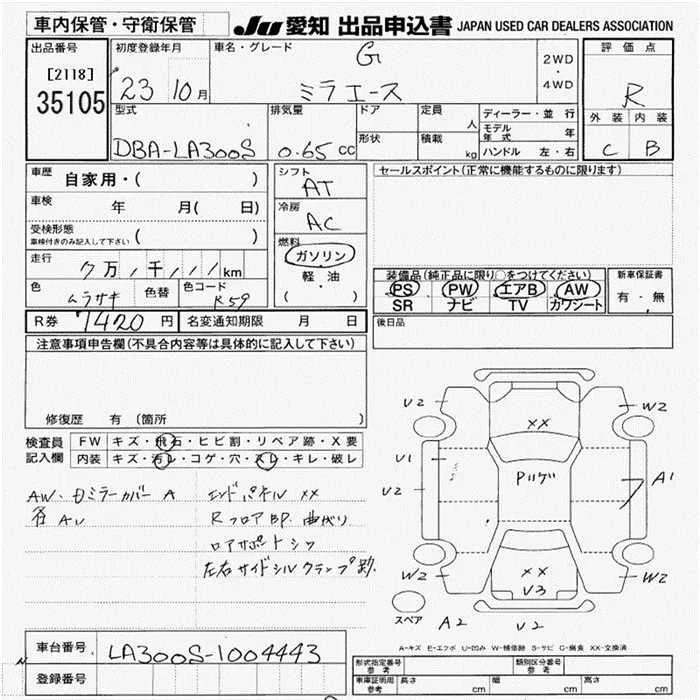 車内保管・守衛保管 JU 愛知 出品申込書 JAPAN USED CAR DEALERS ASSOCIATION
出品番号 初度登録年月 車名・グレード G 2WD・4WD 評価点
[2118] 35105 23 10月 ミラ エース R
型式 排気量 ドア 定員 人 ディーラー・並行 外装 内装
形状 積載 kg モデル年式 年
DBA-LA300S 0.65 cc ハンドル 左・右 C B
車歴 自家用・( ) シフト AT セールスポイント(正常に機能するものに限ります)
車検 年 月( 日) 冷房 AC
受検形態 車検付きのみ記入して下さい ( )
燃料 ガソリン
軽・油
( )
走行 7万 千 km 装備品(純正品に限り○をつけてください) 新車保証書
色 ムラサキ 色替 色コード K59 PS PW エアB AW 有・無
SR ナビ TV カワシート
R券 7420円 名変通知期限 月 日 後日品
注意事項申告欄(不具合内容等は具体的に記入して下さい)
修復歴 有 (箇所
検査員記入欄 FW キズ・飛石・ヒビ割・リペア跡・X要
内装 キズ・汚レ・コゲ・穴・スレ・キレ・破レ
AW. ミラーカバー A エンドパネル XX
各 AU Rフロア BP. 曲がり
ロアサポート シワ
左右サイドシルクランプ跡.
U2 XX W2
U1 Pルーフ A1
U2
W2 XX W2
V3
スペア A2 U2
A-キズ E-エクボ U-凹み W-補修跡 S-サビ C-腐食 XX-交換済
車台番号 LA300S-1004443
登録番号
形式指定番号 参考 類別区分番号 参考
車庫証明用 参考 長さ cm 幅 cm 高さ cm